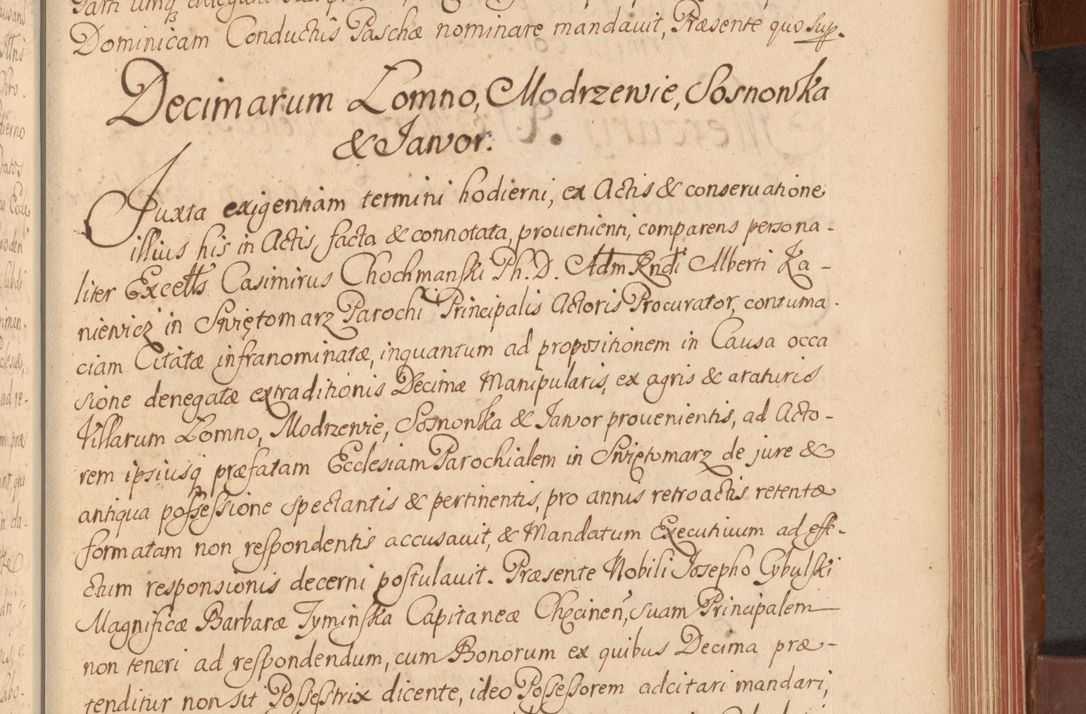 Dominicam Conductûs Paschæ nominare mandavit, Præsente quo supr.
Decimarum Lomno, Modrzewie, Sosnowka
& Jawor.
Juxta exigentiam termini hodierni, ex Actis & conservatione
illius his in Actis, facta & connotata, provenienti, comparens persona-
liter Excellᵗˢ Casimirus Chochmanski Ph. D. Adm Rndi Alberti Ka-
niewicz in Swiętomarz Parochi Principalis Actoris Procurator, contuma-
ciam Citatæ infranominatæ, inquantum ad propositionem in Causa occa
sione denegatæ extraditionis Decimæ Manipularis, ex agris & araturis
Villarum Lomno, Modrzewie, Sosnowka & Jawor provenientis, ad Acto-
rem ipsiusq præfatam Ecclesiam Parochialem in Swiętomarz de jure &
antiqua possessione spectantis & pertinentis, pro annis retroactis retentæ
formatam non respondentis accusavit, & Mandatum Executivum ad effe-
ctum responsionis decerni postulavit. Præsente Nobili Josepho Cybulski
Magnificæ Barbaræ Tyminska Capitaneæ Chęcinen, suam Principalem
non teneri ad respondendum, cum Bonorum ex quibus Decima præ-
tenditur non sit Possestrix dicente, ideo Possessorem adcitari mandari,